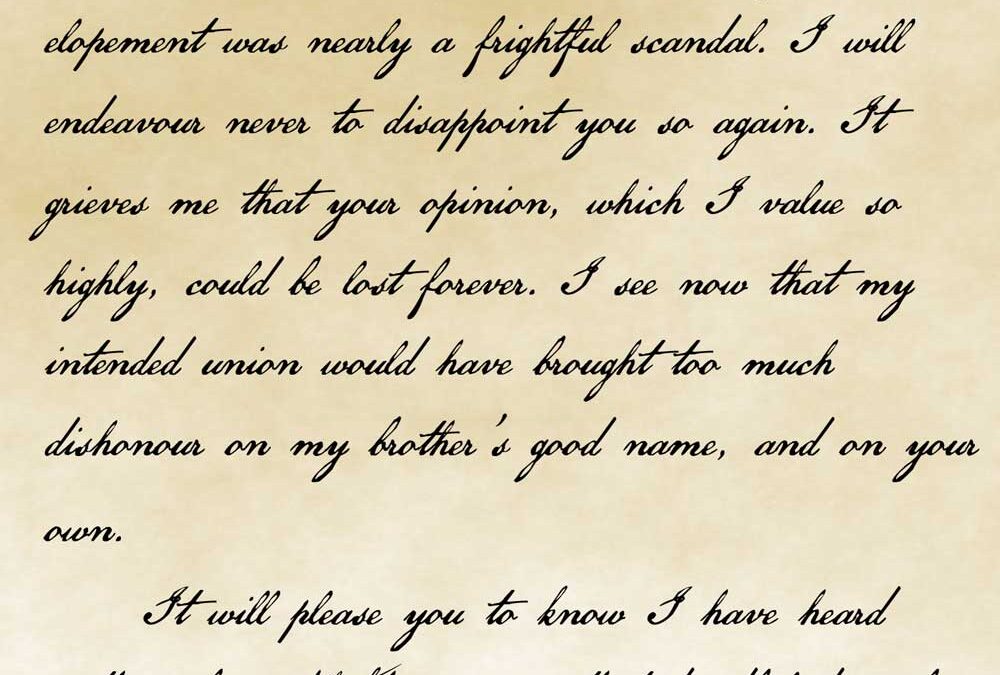 elopement was nearly a frightful scandal. I will
endeavour never to disappoint you so again. It
grieves me that your opinion, which I value so
highly, could be lost forever. I see now that my
intended union would have brought too much
dishonour on my brother's good name, and on your
own.
It will please you to know I have heard